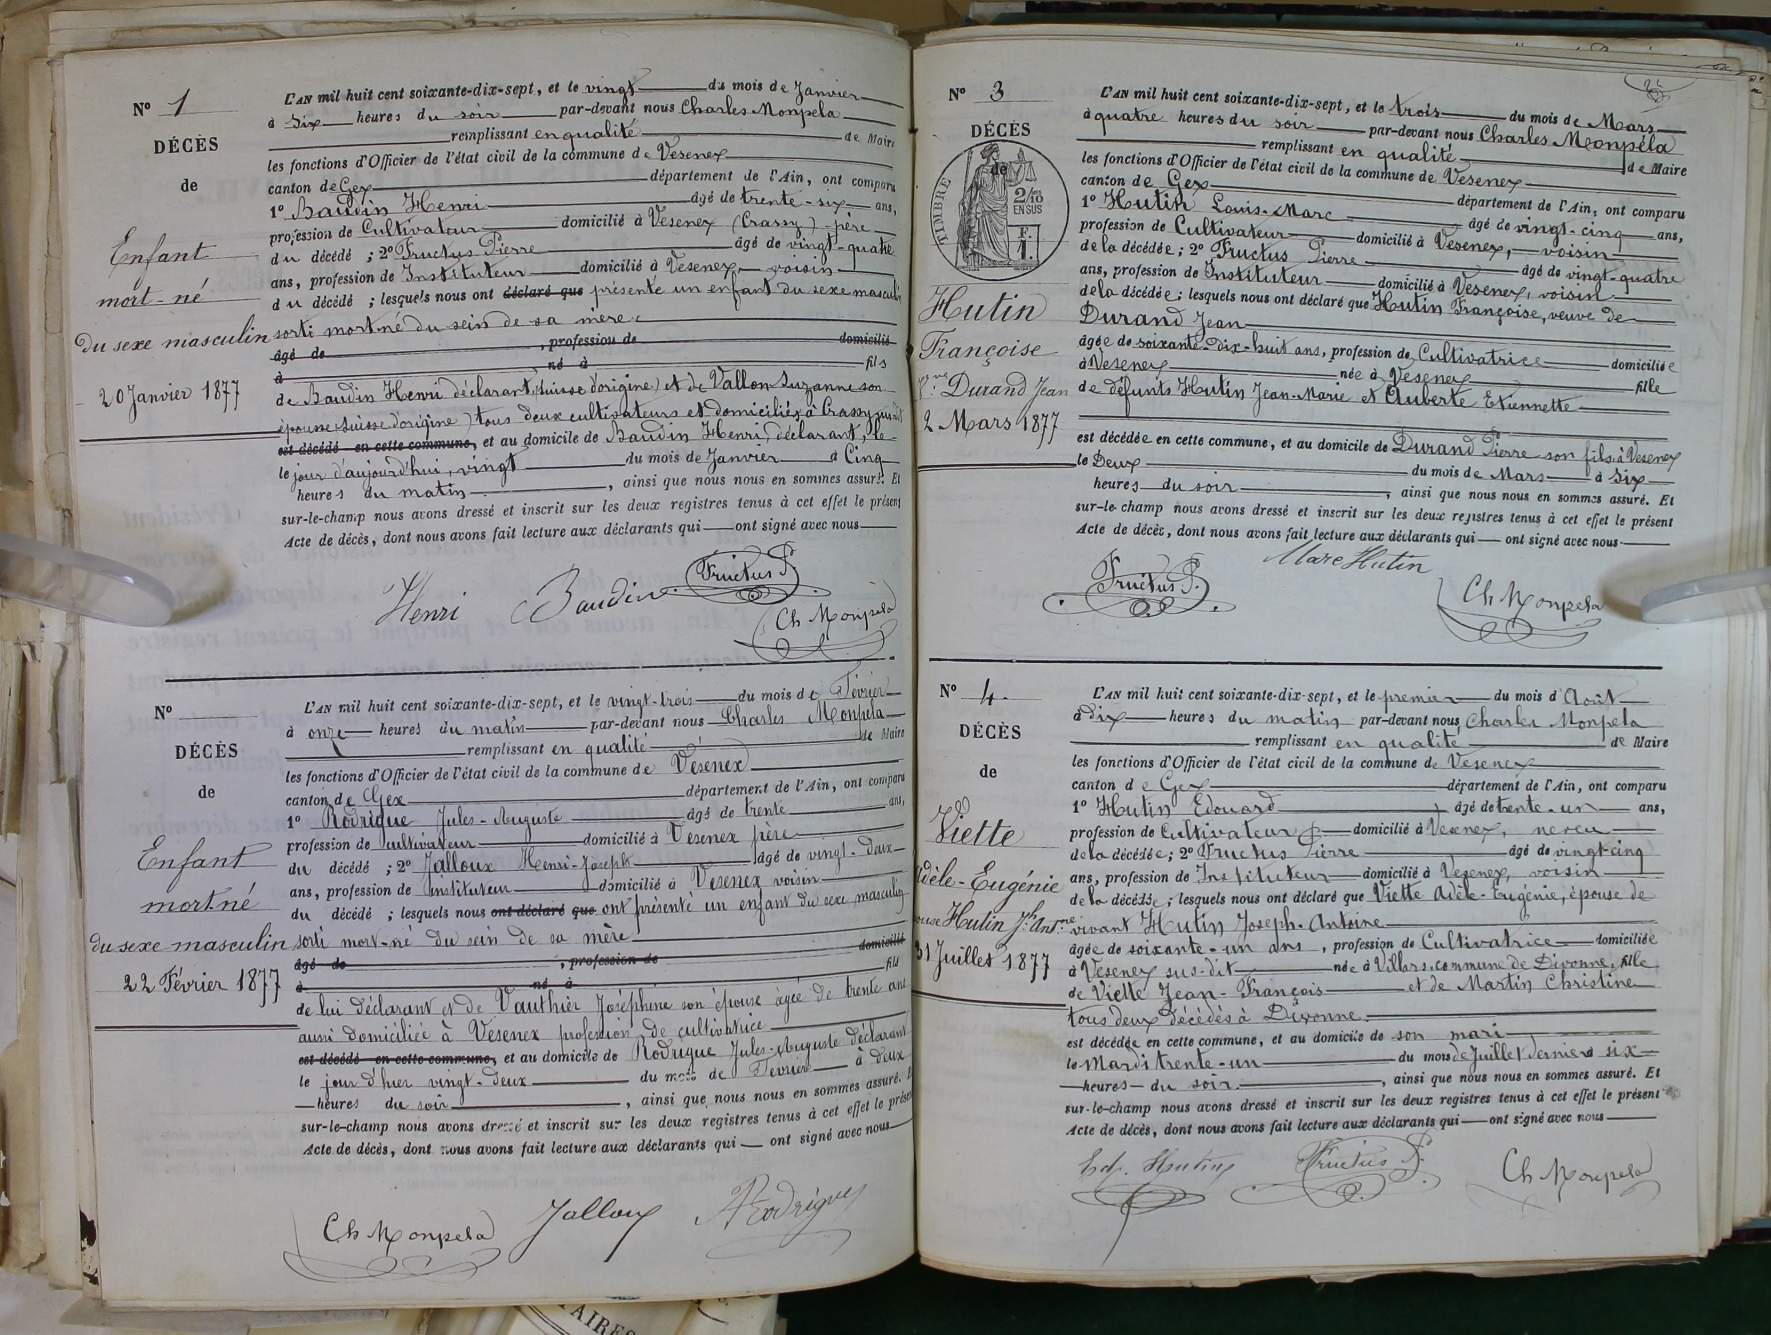 N° 1
DÉCÈS
de
Enfant
mort-né
du sexe masculin
20 Janvier 1877
L'AN mil huit cent soixante-dix-sept, et le vingt du mois de Janvier
à Six heures du soir par-devant nous Charles Monpela
remplissant en qualité de Maire
les fonctions d'Officier de l'état civil de la commune de Vesenex
canton de Gex département de l'Ain, ont comparu
1° Baudin Henri âgé de trente-six ans,
profession de Cultivateur domicilié à Vesenex (Crassy) père
du décédé ; 2° Fructus Pierre âgé de vingt-quatre
ans, profession de Instituteur domicilié à Vesenex voisin
du décédé ; lesquels nous ont déclaré que présenté un enfant du sexe masculin
sorti mort né du sein de sa mère
âgé de , profession de domicilié
à né à fils
de Baudin Henri déclarant (suisse d'origine) et de Vallon Suzanne son
épouse (suisse d'origine) tous deux cultivateurs et domiciliés à Crassy
est décédé en cette commune, et au domicile de Baudin Henri, déclarant, le
le jour d'aujourd'hui, vingt du mois de Janvier à Cinq
heures du matin , ainsi que nous nous en sommes assuré. Et
sur-le-champ nous avons dressé et inscrit sur les deux registres tenus à cet effet le présent
Acte de décès, dont nous avons fait lecture aux déclarants qui ont signé avec nous
Henri Baudin Fructus P.
Ch Monpela
N°
DÉCÈS
de
Enfant
mort né
du sexe masculin
22 Février 1877
L'AN mil huit cent soixante-dix-sept, et le vingt-trois du mois de Février
à onze heures du matin par-devant nous Charles Monpela
remplissant en qualité de Maire
les fonctions d'Officier de l'état civil de la commune de Vésenex
canton de Gex département de l'Ain, ont comparu
1° Rodrigue Jules-Auguste âgé de trente ans,
profession de cultivateur domicilié à Vesenex père
du décédé ; 2° Jalloux Henri-Joseph âgé de vingt-deux
ans, profession de Instituteur domicilié à Vesenex voisin
du décédé ; lesquels nous ont déclaré que ont présenté un enfant du sexe masculin
sorti mort-né du sein de sa mère
âgé de , profession de domicilié
à né à fils
de lui déclarant et de Vauthier Joséphine son épouse âgée de trente ans
aussi domiciliée à Vesenex profession de cultivatrice
est décédé en cette commune, et au domicile de Rodrigue Jules-Auguste déclarant
le jour d'hier vingt-deux du mois de Février à deux
heures du soir , ainsi que nous nous en sommes assuré.
sur-le-champ nous avons dressé et inscrit sur les deux registres tenus à cet effet le présent
Acte de décès, dont nous avons fait lecture aux déclarants qui ont signé avec nous
Ch Monpela Jalloux Rodrigue
N° 3
DÉCÈS
de
TIMBRE
2/10
EN SUS
F.
1.
Hutin
Françoise
Vve Durand Jean
2 Mars 1877
L'AN mil huit cent soixante-dix-sept, et le trois du mois de Mars
à quatre heures du soir par-devant nous Charles Monpéla
remplissant en qualité de Maire
les fonctions d'Officier de l'état civil de la commune de Vesenex
canton de Gex département de l'Ain, ont comparu
1° Hutin Louis-Marc âgé de vingt-cinq ans,
profession de Cultivateur domicilié à Vesenex, voisin
de la décédée ; 2° Fructus Pierre âgé de vingt-quatre
ans, profession de Instituteur domicilié à Vesenex, voisin
de la décédée ; lesquels nous ont déclaré que Hutin Françoise, veuve de
Durand Jean
âgée de soixante-dix-huit ans, profession de Cultivatrice domiciliée
à Vesenex née à Vesenex fille
de défunts Hutin Jean-Marie et Auberte Etiennette
est décédée en cette commune, et au domicile de Durand Pierre son fils à Vesenex
le Deux du mois de Mars à Six
heures du soir , ainsi que nous nous en sommes assuré. Et
sur-le-champ nous avons dressé et inscrit sur les deux registres tenus à cet effet le présent
Acte de décès, dont nous avons fait lecture aux déclarants qui ont signé avec nous
Fructus P. Marc Hutin Ch Monpela
N° 4.
DÉCÈS
de
Viette
Adèle-Eugénie
épouse Hutin Jh Ant.ne
31 Juillet 1877
L'AN mil huit cent soixante-dix-sept, et le premier du mois d'Août
à dix heures du matin par-devant nous Charles Monpela
remplissant en qualité de Maire
les fonctions d'Officier de l'état civil de la commune de Vesenex
canton de Gex département de l'Ain, ont comparu
1° Hutin Edouard âgé de trente-un ans,
profession de Cultivateur domicilié à Vesenex, neveu
de la décédée ; 2° Fructus Pierre âgé de vingt-cinq
ans, profession de Instituteur domicilié à Vesenex, voisin
de la décédée ; lesquels nous ont déclaré que Viette Adèle-Eugénie, épouse de
vivant Hutin Joseph-Antoine
âgée de soixante-un ans , profession de Cultivatrice domiciliée
à Vesenex sus-dit née à Villars, commune de Divonne, fille
de Viette Jean-François et de Martin Christine
tous deux décédés à Divonne
est décédée en cette commune, et au domicile de son mari
le Mardi trente-un du mois de Juillet dernier à six
heures du soir , ainsi que nous nous en sommes assuré. Et
sur-le-champ nous avons dressé et inscrit sur les deux registres tenus à cet effet le présent
Acte de décès, dont nous avons fait lecture aux déclarants qui ont signé avec nous
Ed. Hutin Fructus P. Ch Monpela